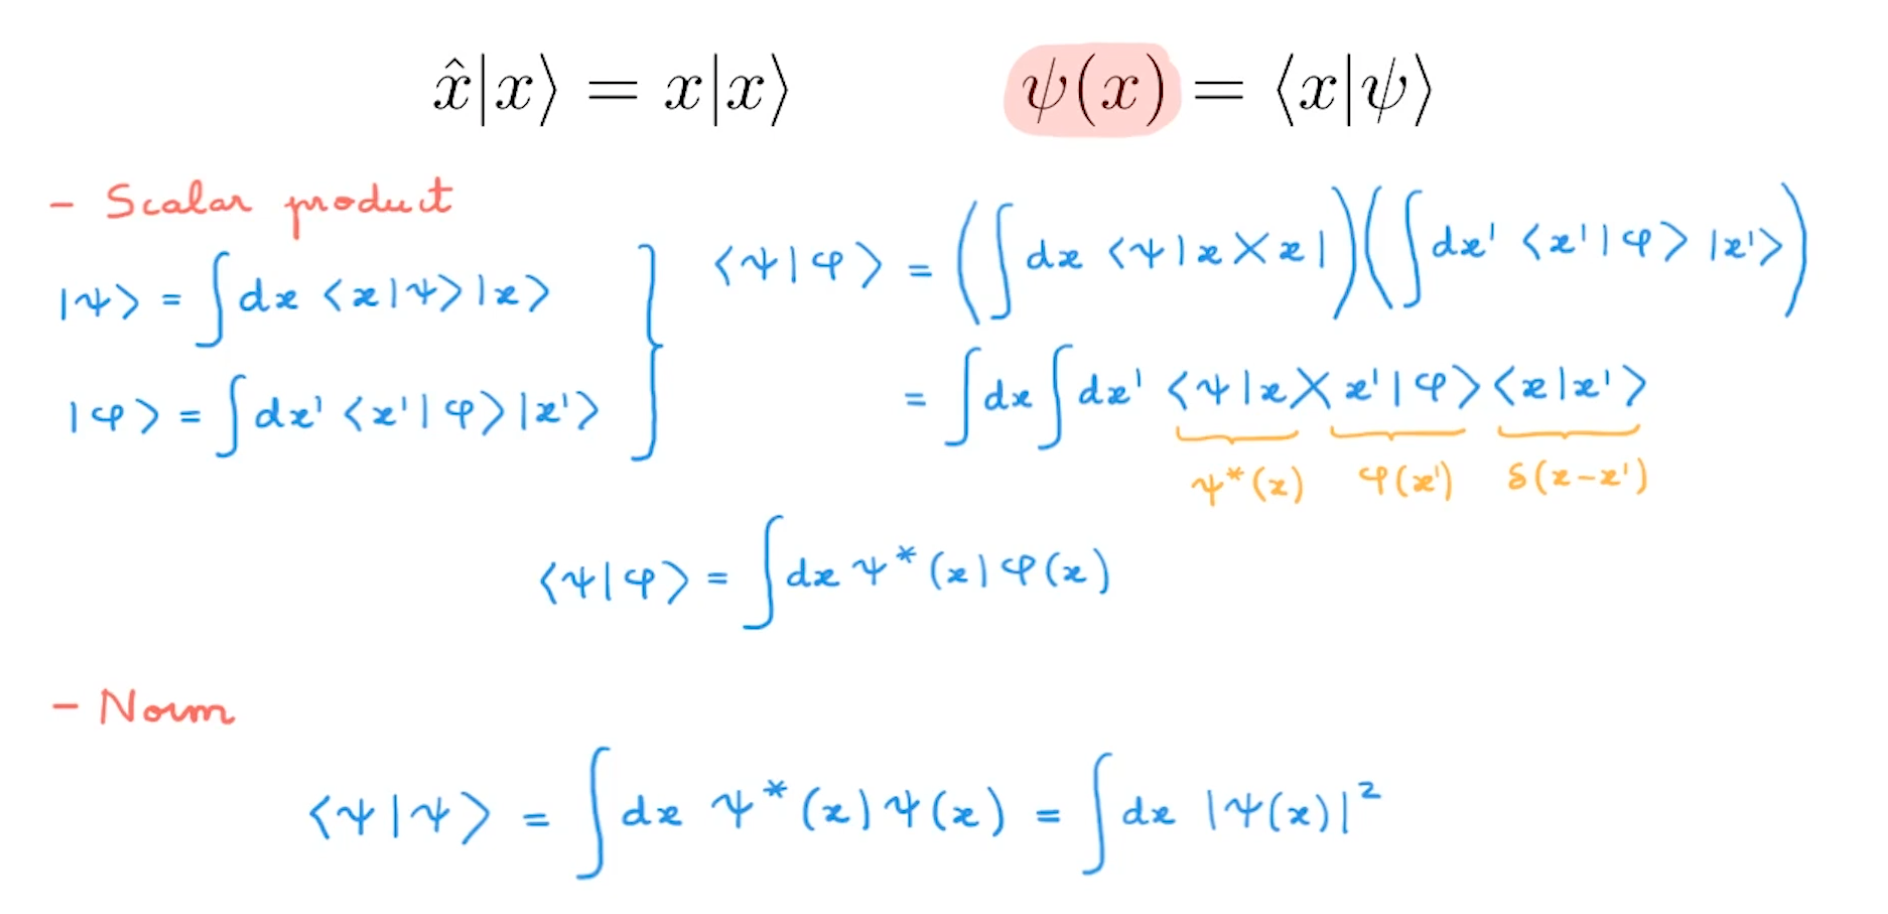 x̂|x⟩ = x|x⟩ ψ(x) = ⟨x|ψ⟩
- Scalar product
|ψ⟩ = ∫dx ⟨x|ψ⟩|x⟩
|φ⟩ = ∫dx' ⟨x'|φ⟩|x'⟩
⟨ψ|φ⟩ = (∫dx ⟨ψ|x⟩⟨x|)(∫dx' ⟨x'|φ⟩|x'⟩)
= ∫dx ∫dx' ⟨ψ|x⟩⟨x'|φ⟩⟨x|x'⟩
ψ*(x) φ(x') δ(x-x')
⟨ψ|φ⟩ = ∫dx ψ*(x) φ(x)
- Norm
⟨ψ|ψ⟩ = ∫dx ψ*(x) ψ(x) = ∫dx |ψ(x)|²